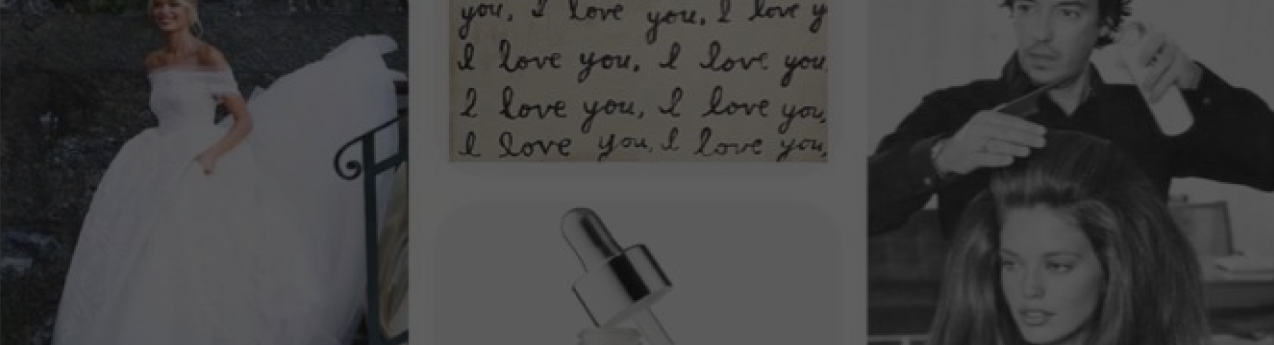 you, I love you, I love y
I love you, I love you
I love you, I love you,
I love you, I love you,